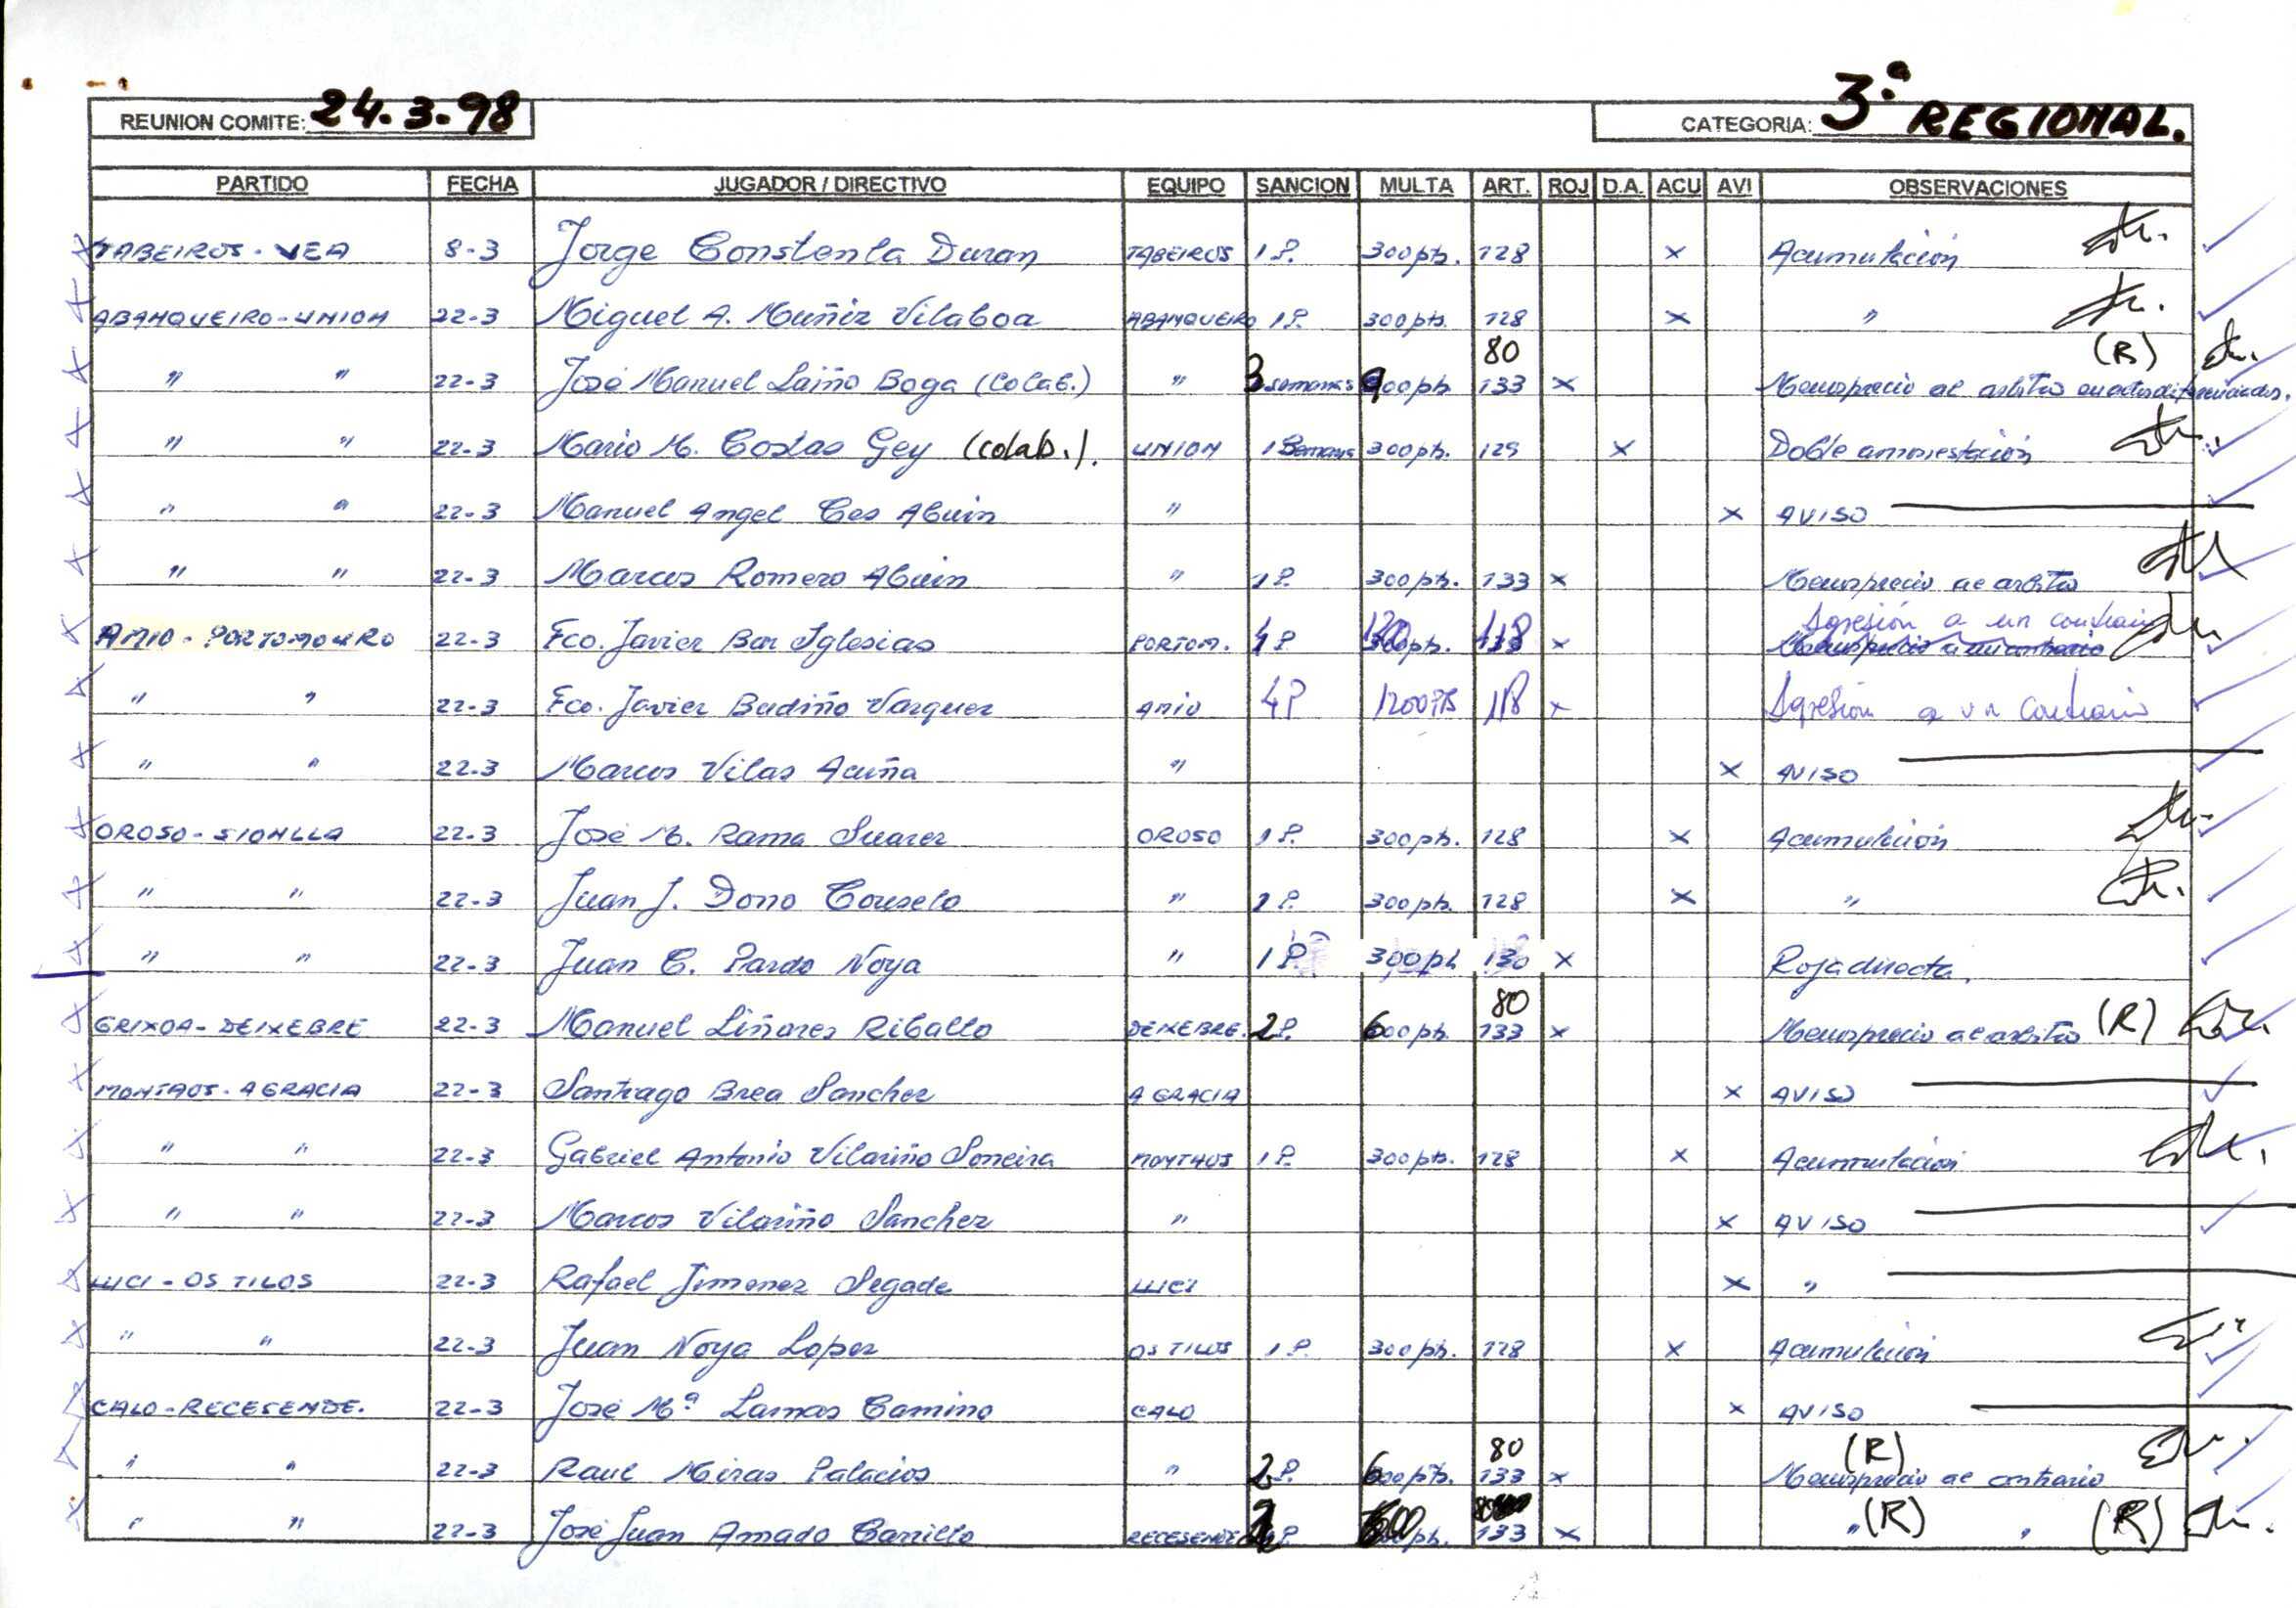 REUNION COMITE: 24.3.98 CATEGORIA: 3ª REGIONAL.
PARTIDO FECHA JUGADOR / DIRECTIVO EQUIPO SANCION MULTA ART. ROJ D.A. ACU AVI OBSERVACIONES
TABEIROS - VEA 8-3 Jorge Constenla Duran TABEIROS 1 P. 300 pts. 128 x Acumulación
ABANQUEIRO - UNION 22-3 Miguel A. Muñiz Vilaboa ABANQUEIRO 1 P. 300 pts. 128 x "
80 (R)
" " 22-3 José Manuel Laiño Boga (Colab.) " 3 semanas 900 pts. 133 x Menosprecio al arbitro en actos diferenciados.
" " 22-3 Mario M. Costas Gey (colab.). UNION 1 Semana 300 pts. 129 x Doble amonestación
" " 22-3 Manuel Angel Ces Abuin " x AVISO
" " 22-3 Marcos Romero Abuin " 1 P. 300 pts. 133 x Menosprecio al arbitro
Agresión a un contrario
AMIO - PORTOMOURO 22-3 Fco. Javier Bar Iglesias PORTOM. 4 P. 1200 pts. 118 x
" " 22-3 Fco. Javier Budiño Vazquez AMIO 4P 1200 PTS 118 x Agresión a un contrario
" " 22-3 Marcos Vilas Acuña " x AVISO
OROSO - SIONLLA 22-3 José M. Rama Suarez OROSO 1 P. 300 pts. 128 x Acumulación
" " 22-3 Juan J. Dono Couselo " 1 P. 300 pts. 128 x "
" " 22-3 Juan C. Pardo Noya " 1 P. 300 pts 130 x Roja directa.
80
GRIXOA - DEIXEBRE 22-3 Manuel Liñares Riballo DEIXEBRE. 2 P. 600 pts. 133 x Menosprecio al arbitro (R)
MONTAOS - A GRACIA 22-3 Santiago Brea Sanchez A GRACIA x AVISO
" " 22-3 Gabriel Antonio Vilariño Soneira MONTAOS 1 P. 300 pts. 128 x Acumulación
" " 22-3 Marcos Vilariño Sanchez " x AVISO
LUCI - OS TILOS 22-3 Rafael Jimenez Segade LUCI x "
" " 22-3 Juan Noya Lopez OS TILOS 1 P. 300 pts. 128 x Acumulación
CALO - RECESENDE. 22-3 José Mª Lamas Camino CALO x AVISO
80 (R)
" " 22-3 Raul Miras Palacios " 2 P. 600 pts. 133 x Menosprecio al contrario
" " 22-3 José Juan Amado Carrillo RECESENDE P. pts. 133 x " (R) " (R)